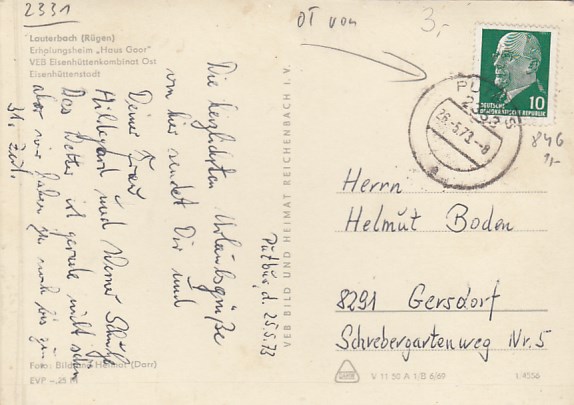 2331
OT von
3,-
Lauterbach (Rügen)
Erholungsheim „Haus Goor"
VEB Eisenhüttenkombinat Ost
Eisenhüttenstadt
10
DEUTSCHE
DEMOKRATISCHE REPUBLIK
26.-5.73.-8
a
846
1,-
Putbus, d. 25.5.73
Die herzlichsten Urlaubsgrüße
von hier sendet Dir und
Deiner Frau
Hildegard und Werner
Das Wetter ist gerade nicht schön
aber wir haben ja noch bis zum
31. Zeit.
VEB BILD UND HEIMAT REICHENBACH I. V.
Herrn
Helmut Boden
8291 Gersdorf
Schrebergartenweg Nr. 5
Foto: Bild und Heimat (Darr)
EVP -,25 M
V 11 50 A 1/B 6/69